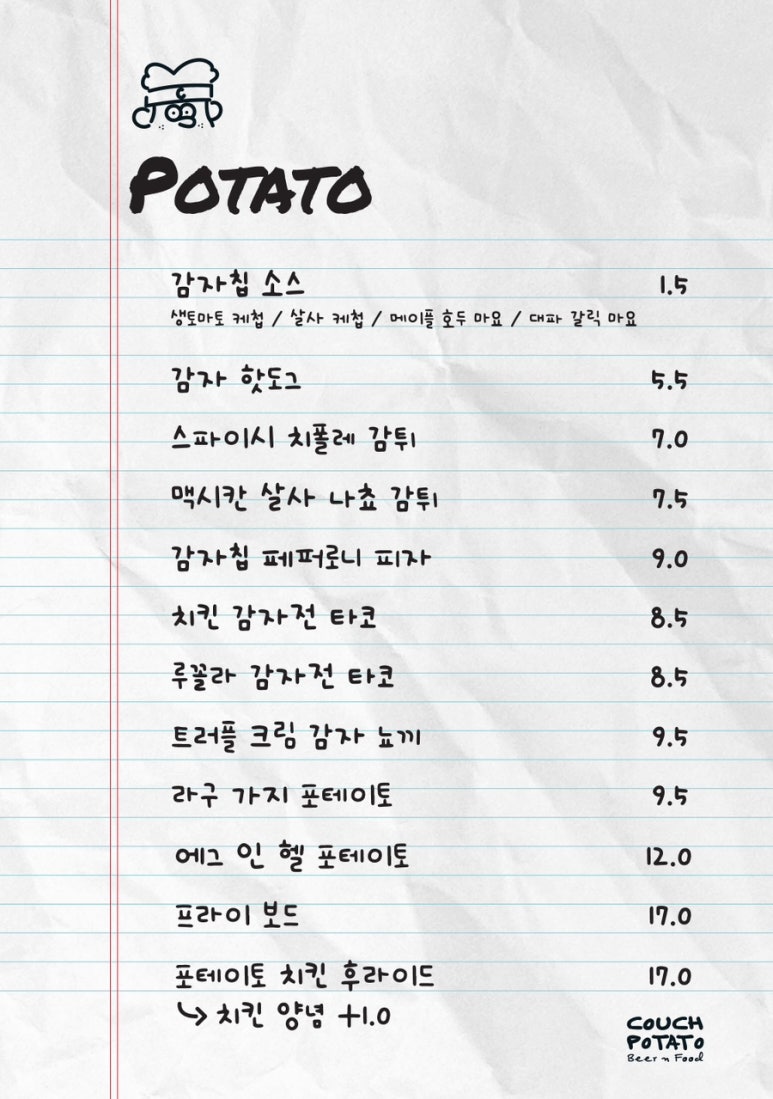 POTATO
감자칩 소스 1.5
생토마토 케첩 / 살사 케첩 / 메이플 호두 마요 / 대파 갈릭 마요
감자 핫도그 5.5
스파이시 치폴레 감튀 7.0
맥시칸 살사 나쵸 감튀 7.5
감자칩 페퍼로니 피자 9.0
치킨 감자전 타코 8.5
루꼴라 감자전 타코 8.5
트러플 크림 감자 뇨끼 9.5
라구 가지 포테이토 9.5
에그 인 헬 포테이토 12.0
프라이 보드 17.0
포테이토 치킨 후라이드 17.0
↳ 치킨 양념 +1.0
COUCH
POTATO
Beer n Food